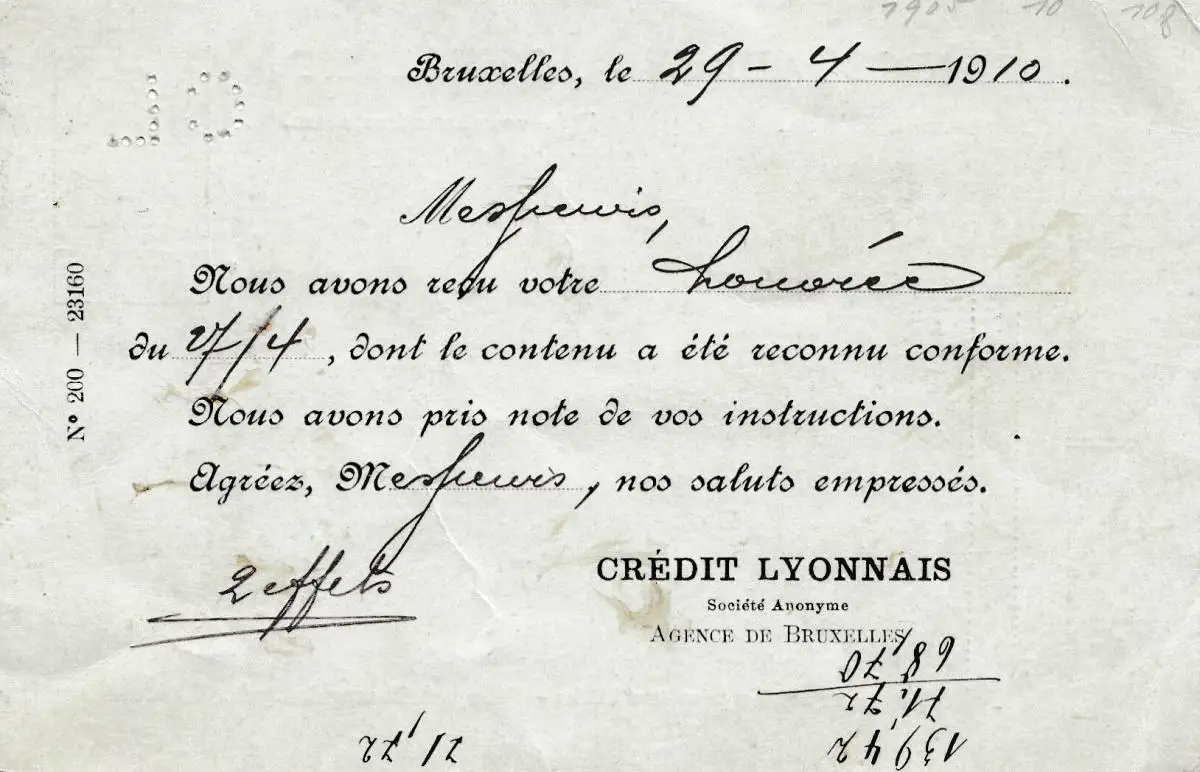 1905 10 108
Bruxelles, le 29 - 4 — 1910.
CL
Messieurs,
Nous avons reçu votre honorée
du 27/4, dont le contenu a été reconnu conforme.
Nous avons pris note de vos instructions.
Agréez, Messieurs, nos saluts empressés.
2 effets
CRÉDIT LYONNAIS
Société Anonyme
AGENCE DE BRUXELLES
139,42
71,72
71,72
N° 200 — 23160